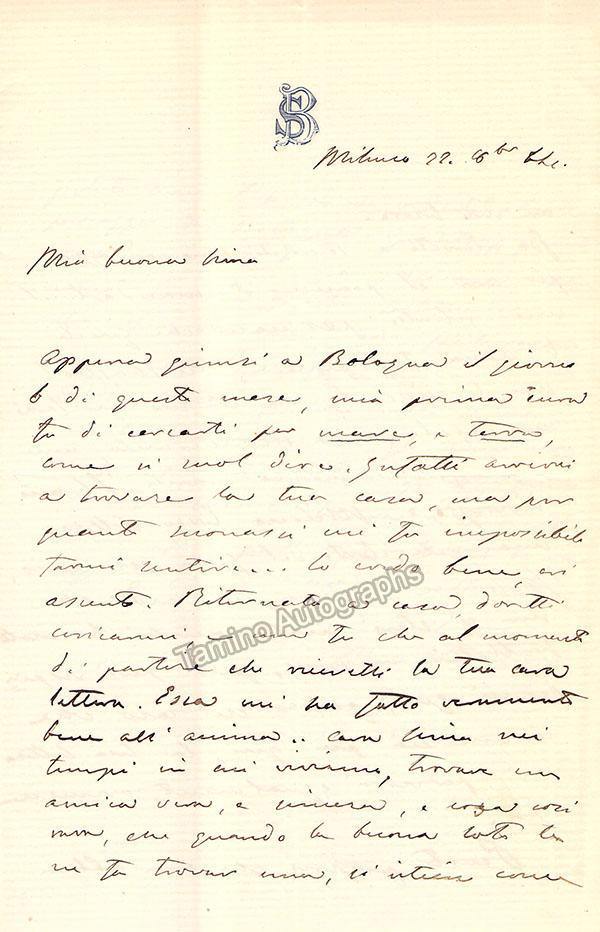 SB
Milano 22. 8bre
Mia buona Nina
Appena giunsi a Bologna il giorno
6 di questo mese, mia prima cura
fu di cercarti per mare, e terra,
come si suol dire. Infatti arrivai
a trovare la tua casa, ma per
quanto suonassi mi fu impossibile
farmi sentire.... lo credo bene, eri
assente. Ritornata a casa, dovetti
coricarmi, e non fu che al momento
di partire che ricevetti la tua cara
lettera. Essa mi ha fatto veramente
bene all' anima.. cara Nina nei
tempi in cui viviamo, trovare un
amica vera, e sincera, e cosa così
rara, che quando la buona sorte
ne fa trovar una, si ritiene come
Tamino Autographs